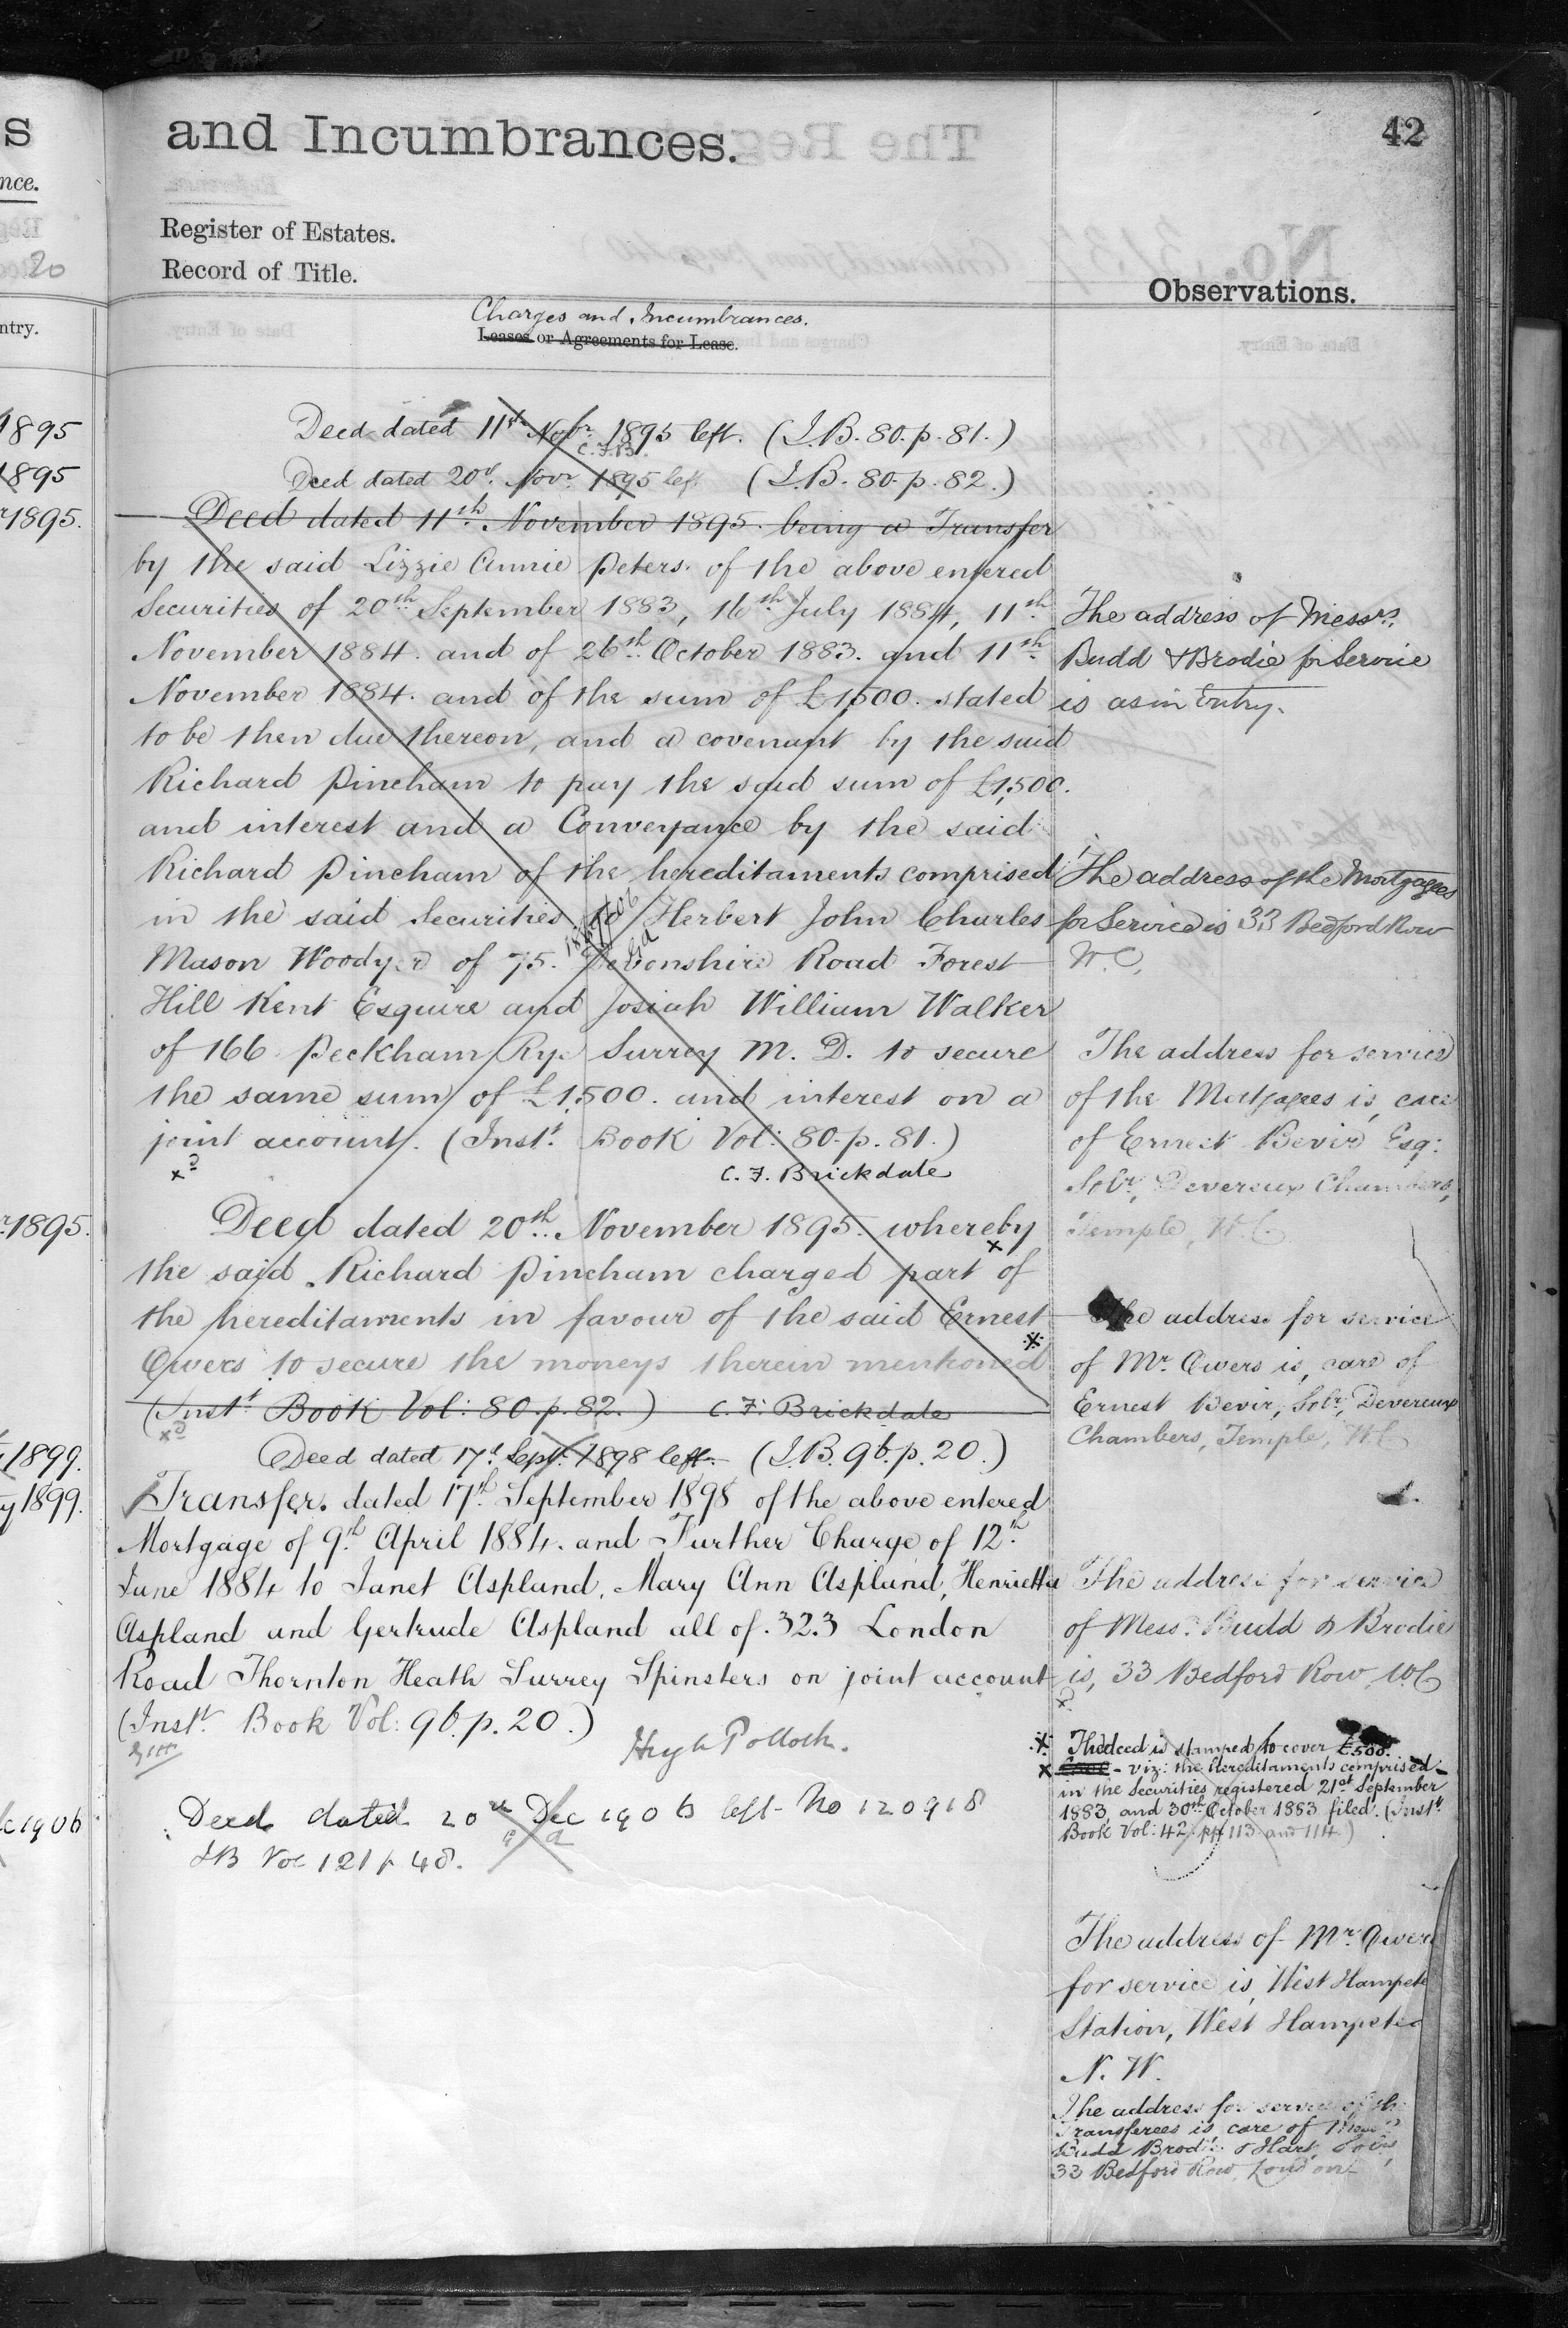 s
nce.
20
ntry.
1895
1895
1895.
1895.
1899.
1899.
1906
and Incumbrances.
42
Register of Estates.
Record of Title.
Observations.
Charges and Incumbrances.
Leases or Agreements for Lease.
Deed dated 11th Novr. 1895 left. (I.B. 80. p. 81.)
C.F.B.
Deed dated 20th Novr. 1895 left (I.B. 80. p. 82.)
Deed dated 11th November 1895. being a Transfer
by the said Lizzie Annie Peters. of the above entered
Securities of 20th September 1883, 16th July 1884, 11th
November 1884. and of 26th October 1883. and 11th
November 1884. and of the sum of £1500. stated
to be then due thereon, and a covenant by the said
Richard Pincham to pay the said sum of £1,500.
and interest and a Conveyance by the said
Richard Pincham of the hereditaments comprised
in the said Securities to Herbert John Charles
Mason Woodyer of 75. Devonshire Road Forest
Hill Kent Esquire and Josiah William Walker
of 166 Peckham Rye Surrey M. D. to secure
the same sum of £1,500. and interest on a
joint account. (Inst. Book Vol: 80. p. 81.)
C. F. Brickdale
Deed dated 20th November 1895. whereby
x
the said Richard Pincham charged part of
the hereditaments in favour of the said Ernest
Owers to secure the moneys therein mentioned
(Inst. Book Vol: 80. p. 82.) C. F. Brickdale
Deed dated 17th Sept. 1898 left. (I.B. 96. p. 20.)
Transfer. dated 17th September 1898 of the above entered
Mortgage of 9th April 1884. and Further Charge of 12th
June 1884 to Janet Aspland, Mary Ann Aspland, Henrietta
Aspland and Gertrude Aspland all of 323 London
Road Thornton Heath Surrey Spinsters on joint account
(Inst. Book Vol: 96. p. 20.)
Hugh Pollock.
Deed dated 20th Dec 1906 left No 120918
IB Vol 121 p 48.
The address of Messrs.
Budd & Brodie for Service
is as in Entry.
The address of the Mortgagees
for Service is 33 Bedford Row
W.C.
The address for service
of the Mortgagees is, care
of Ernest Bevir Esq:
Solr, Devereux Chambers,
Temple, W.C.
The address for service
of Mr. Owers is, care of
Ernest Bevir, Solr, Devereux
Chambers, Temple, W.C.
The address for service
of Messrs. Budd & Brodie
is, 33 Bedford Row, W.C.
The deed is stamped to cover £500.
x - viz: the hereditaments comprised
in the Securities registered 21st September
1883, and 30th October 1883 filed. (Inst.
Book Vol: 42. pp 113 and 114.)
The address of Mr. Owers
for service is, West Hampste
Station, West Hampstea
N. W.
The address for service of the
Transferees is care of Messrs
Budd Brodie & Hart, Solrs,
33 Bedford Row, London